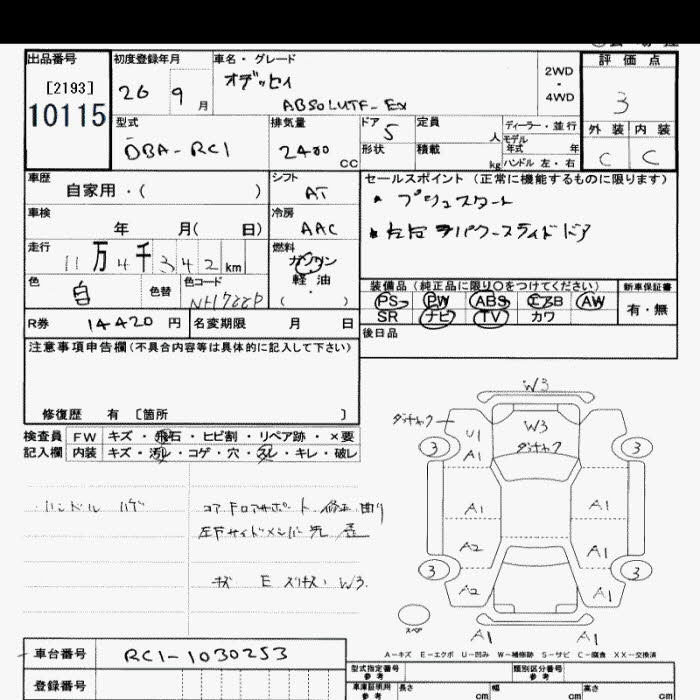 出品番号 初度登録年月 車名・グレード 評価点
[2193] 26 9 月 オデッセイ 2WD・4WD 3
10115 ABSOLUTE-EX
型式 排気量 ドア 5 定員 人 ディーラー・並行 外装 内装
DBA-RC1 2400 CC 形状 積載 kg モデル年式 年 C C
ハンドル 左・右
車歴 シフト セールスポイント (正常に機能するものに限ります)
自家用・( ) AT ・プッシュスタート
車検 冷房 ・左右
年 月( 日) AAC パワースライドドア
走行 燃料
11万4千342km ガソリン
軽油
( )
色 色替 色コード 装備品 (純正品に限り○をつけてください) 新車保証書
白 NH788P PS PW ABS エアB AW 有・無
SR ナビ TV カワ
R券 14420 円 名変期限 月 日 後日品
注意事項申告欄(不具合内容等は具体的に記入して下さい)
修復歴 有 [箇所 ]
検査員 FW キズ・飛石・ヒビ割・リペア跡・×要
記入欄 内装 キズ・汚レ・コゲ・穴・スレ・キレ・破レ
ハンドル ハゲ コアF ロアサポート 修正 曲り
左Fサイドメンバー先
キズ E スリキズ W3
W3
W3
U1
A1
3 3
A1 A1
A2 A1
3 3
A2 A1
スペア A1 A1
A-キズ E-エクボ U-凹み W-補修跡 S-サビ C-腐食 XX-交換済
車台番号 RC1-1030253
登録番号
型式指定番号 参考 類別区分番号 参考
車庫証明用 参考 長さ cm 幅 cm 高さ cm